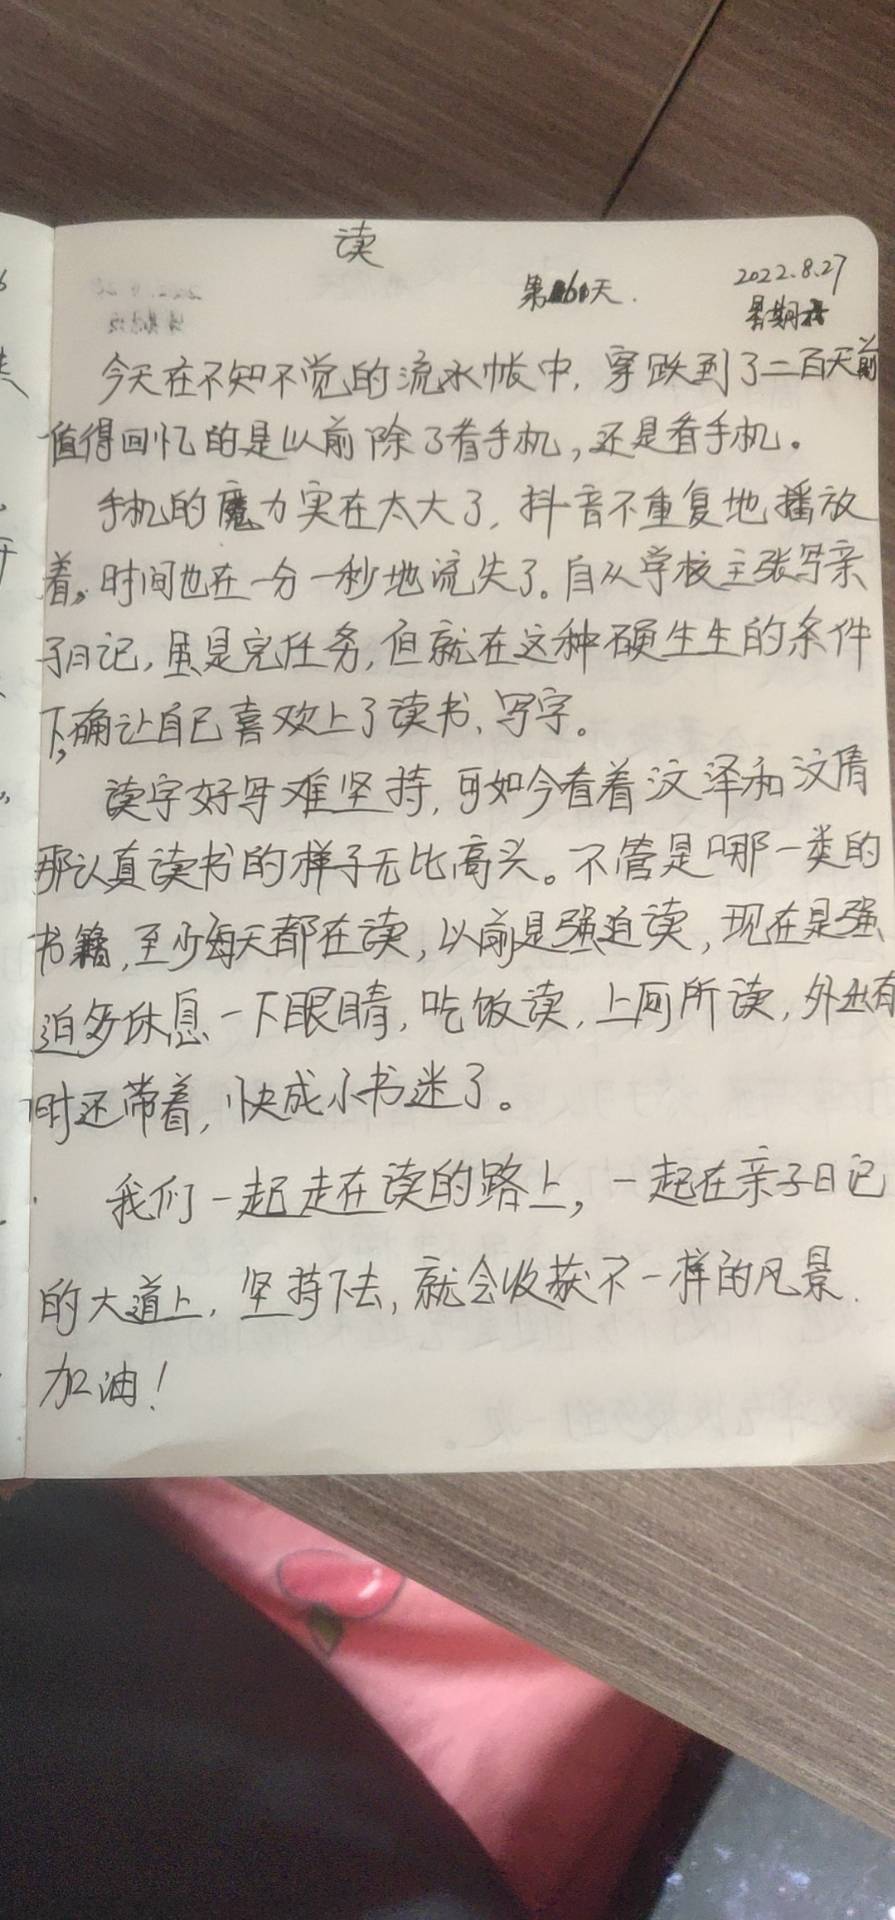 读
第60天.
2022.8.27
星期六
今天在不知不觉的流水帐中，穿跌到了二百天前
值得回忆的是以前除了看手机，还是看手机。
手机的魔力实在太大了，抖音不重复地播放
着，时间也在一分一秒地流失了。自从学校主张写亲
子日记，虽是完任务，但就在这种硬生生的条件
下，确让自己喜欢上了读书、写字。
读字好写难坚持，可如今看着汶泽和汶倩
那认真读书的样子无比高兴。不管是哪一类的
书籍，至少每天都在读，以前是强迫读，现在是强
迫多休息一下眼睛，吃饭读，上厕所读，外出有
时还带着，快成小书迷了。
我们一起走在读的路上，一起在亲子日记
的大道上，坚持下去，就会收获不一样的风景.
加油！